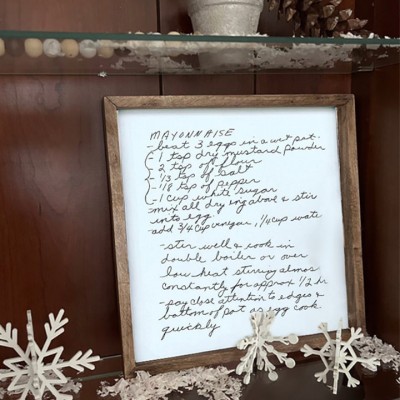 MAYONNAISE
- beat 3 eggs in a wet pot.
- 1 tsp dry mustard powder
- 2 tsp of flour
- 1/3 tsp of salt
- 1/8 tsp of pepper
- 1 cup white sugar
- mix all dry ing above & stir
into egg
- add 3/4 cup vinegar, 1/4 cup wate
- stir well & cook in
double boiler or over
low heat stirring almos
constantly for approx 1/2 hr
- pay close attention to edges &
bottom of pot as egg cook
quickly